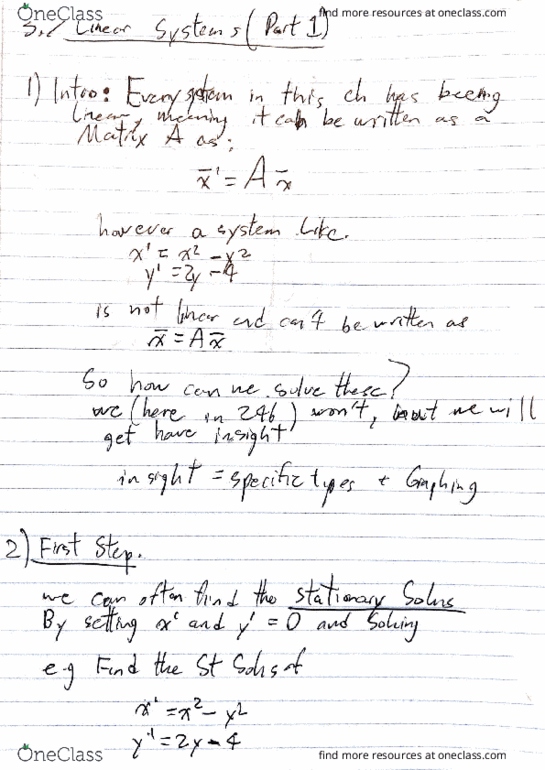 OneClass
find more resources at oneclass.com
3.7 Linear Systems (Part 1)
1) Intro: Every system in this ch has beeing
linear, meaning it can be written as a
Matrix A as;
x̄' = A x̄
however a system like.
x' = x² - y²
y' = 2y - 4
is not linear and can't be written as
x̄ = A x̄
So how can we solve these?
we (here in 246) won't, but we will
get have insight
insight = specific types + Graphing
2) First Step.
we can often find the stationary Solns
By setting x' and y' = 0 and Solving
e.g Find the St Solns of
x' = x² - y²
y' = 2y - 4
OneClass
find more resources at oneclass.com